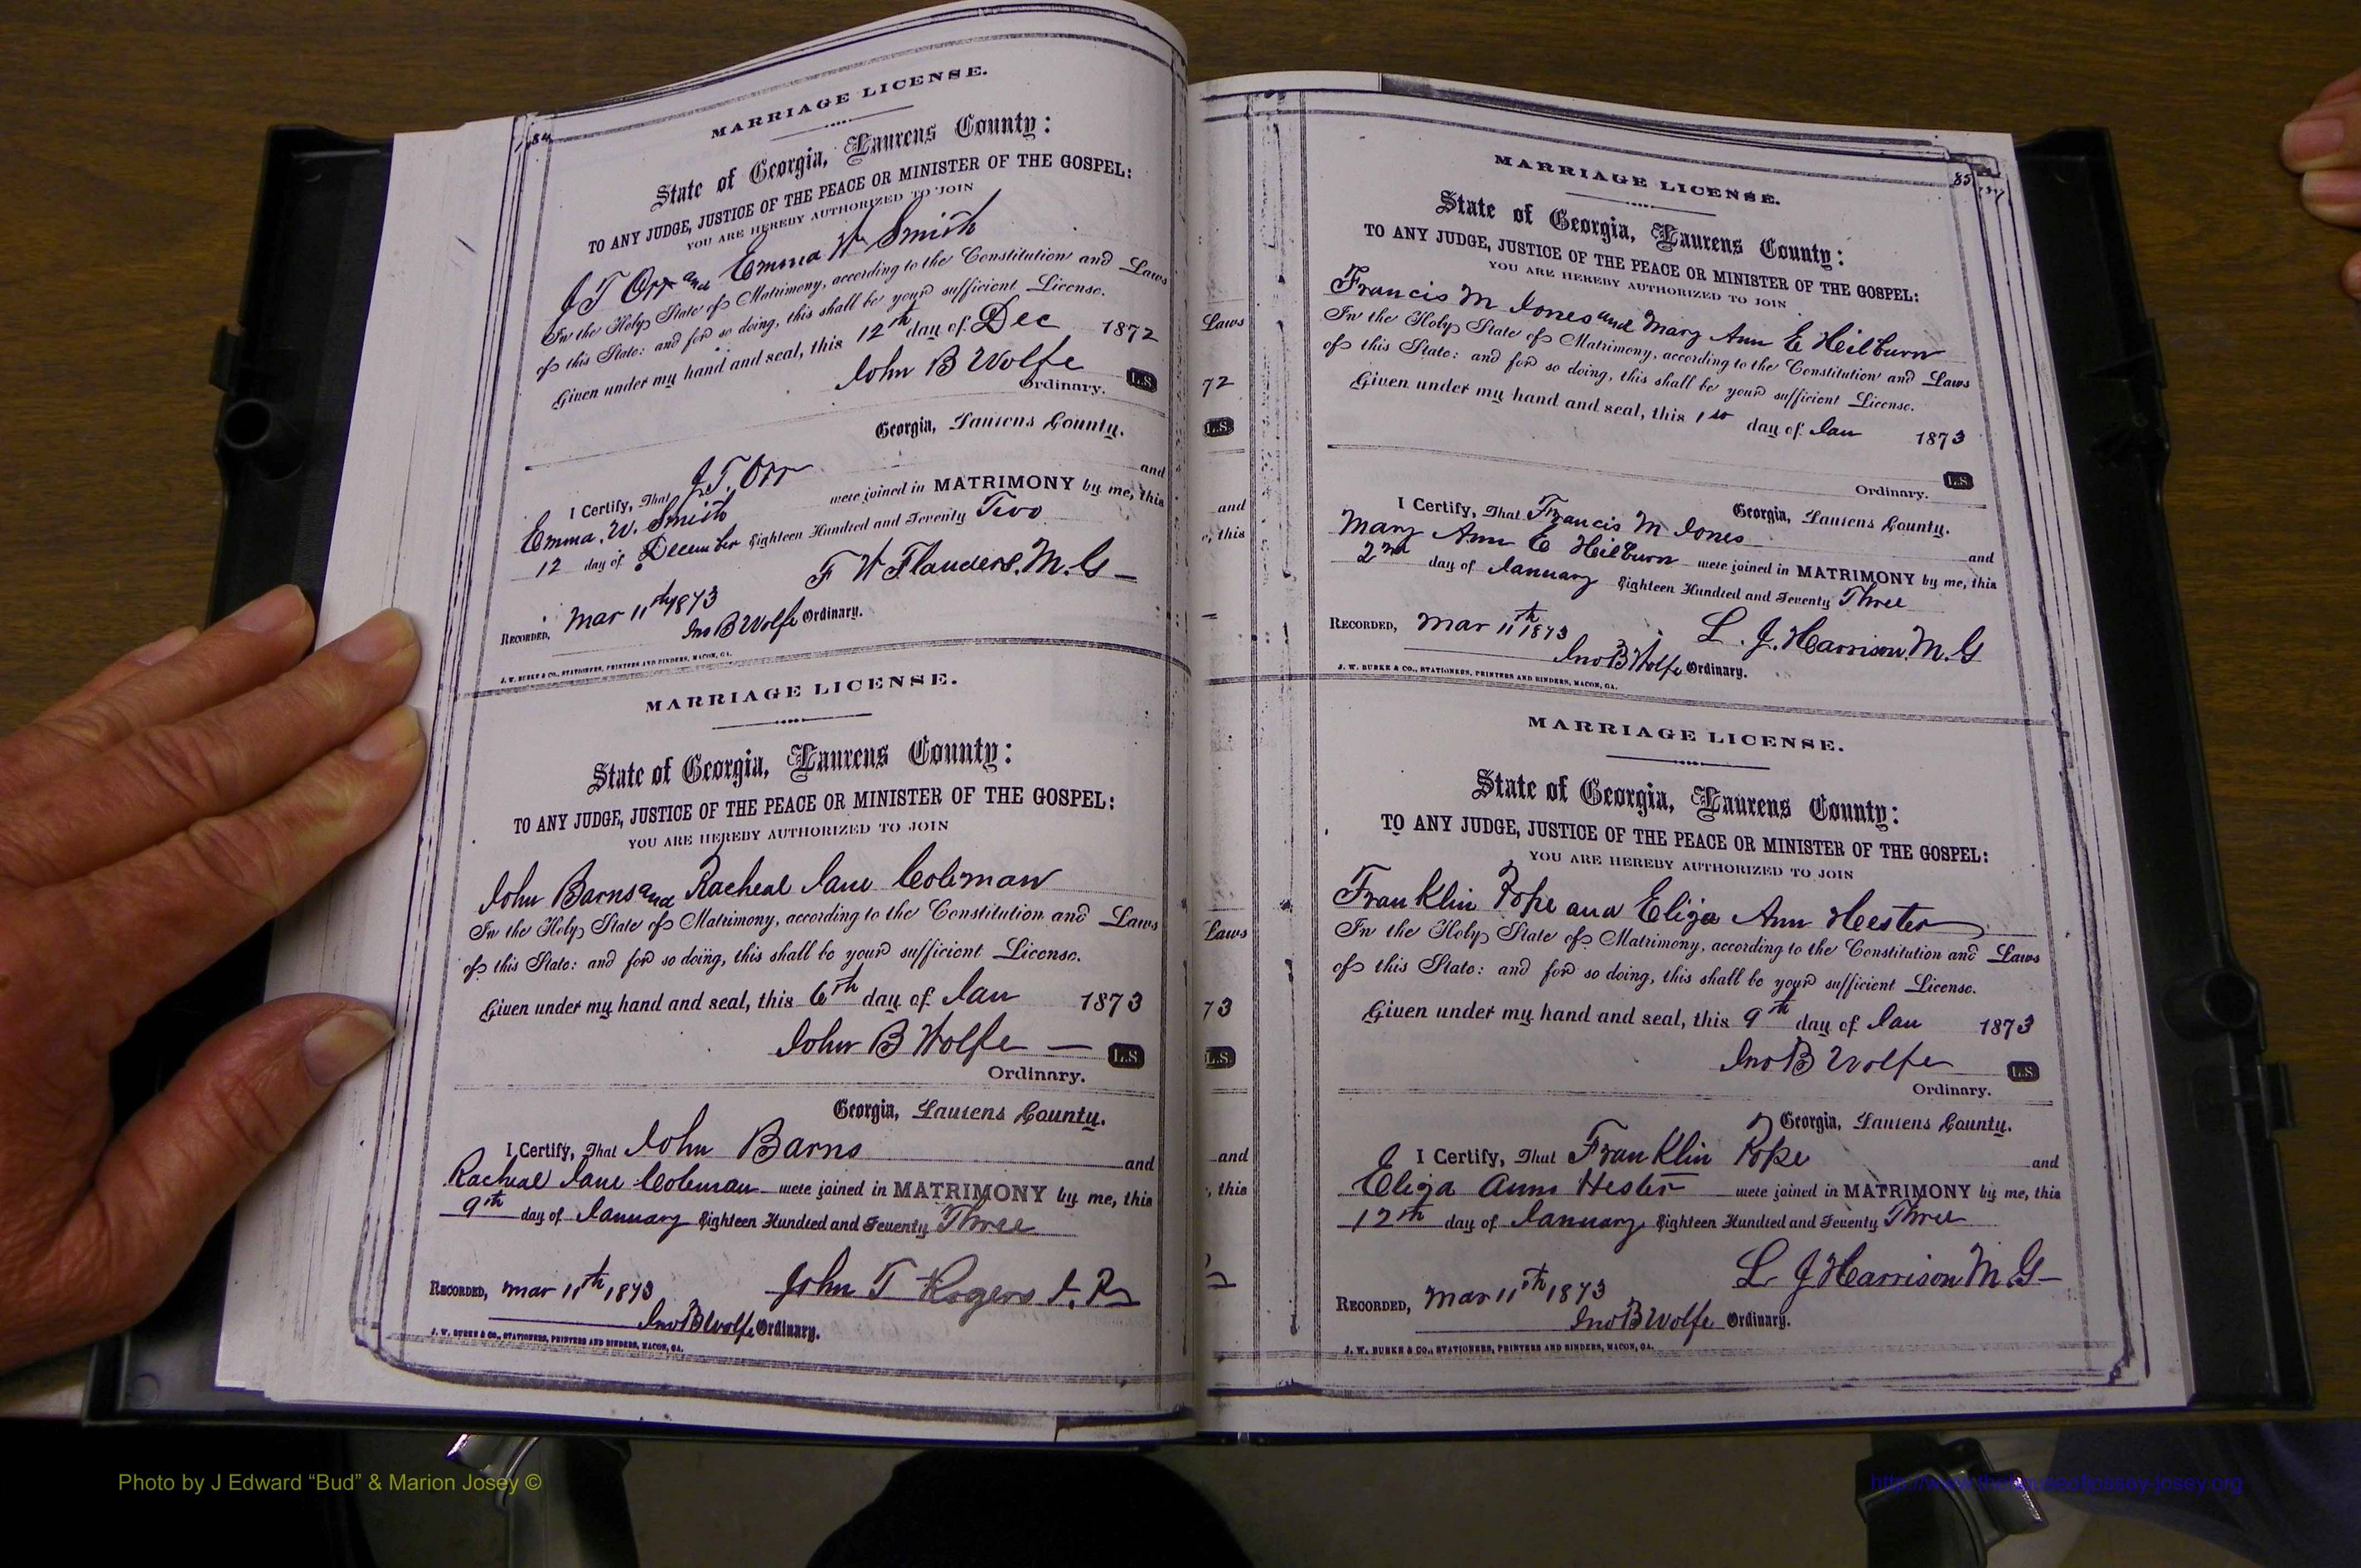 84
MARRIAGE LICENSE.
State of Georgia, Laurens County:
TO ANY JUDGE, JUSTICE OF THE PEACE OR MINISTER OF THE GOSPEL:
YOU ARE HEREBY AUTHORIZED TO JOIN
J T Orr and Emma W Smith
In the Holy State of Matrimony, according to the Constitution and Laws
of this State: and for so doing, this shall be your sufficient License.
Given under my hand and seal, this 12th day of Dec 1872
John B Wolfe
Ordinary. L.S.
Georgia, Laurens County.
I Certify, That J. T. Orr and
Emma. W. Smith were joined in MATRIMONY by me, this
12 day of December Eighteen Hundred and Seventy Two
F W Flanders. M. G
RECORDED, Mar 11th 1873
Jno B Wolfe Ordinary.
J. W. BURKE & CO., STATIONERS, PRINTERS AND BINDERS, MACON, GA.
MARRIAGE LICENSE.
State of Georgia, Laurens County:
TO ANY JUDGE, JUSTICE OF THE PEACE OR MINISTER OF THE GOSPEL:
YOU ARE HEREBY AUTHORIZED TO JOIN
John Barns and Racheal Jane Coleman
In the Holy State of Matrimony, according to the Constitution and Laws
of this State: and for so doing, this shall be your sufficient License.
Given under my hand and seal, this 6th day of Jan 1873
John B Wolfe — L.S.
Ordinary.
Georgia, Laurens County.
I Certify, That John Barns and
Racheal Jane Coleman were joined in MATRIMONY by me, this
9th day of January Eighteen Hundred and Seventy Three
John T Rogers
RECORDED, Mar 11th 1873
Jno B Wolfe Ordinary.
J. W. BURKE & CO., STATIONERS, PRINTERS AND BINDERS, MACON, GA.
Laws
72
L.S.
and
, this
Laws
73
L.S.
and
, this
85
MARRIAGE LICENSE.
State of Georgia, Laurens County:
TO ANY JUDGE, JUSTICE OF THE PEACE OR MINISTER OF THE GOSPEL:
YOU ARE HEREBY AUTHORIZED TO JOIN
Francis M Jones and Mary Ann E Heilburn
In the Holy State of Matrimony, according to the Constitution and Laws
of this State: and for so doing, this shall be your sufficient License.
Given under my hand and seal, this 1st day of Jan 1873
Ordinary. L.S.
Georgia, Laurens County.
I Certify, That Francis M Jones and
Mary Ann E Heilburn were joined in MATRIMONY by me, this
2nd day of January Eighteen Hundred and Seventy Three
L. J. Harrison. M. G
RECORDED, Mar 11th 1873
Jno B Wolfe Ordinary.
J. W. BURKE & CO., STATIONERS, PRINTERS AND BINDERS, MACON, GA.
MARRIAGE LICENSE.
State of Georgia, Laurens County:
TO ANY JUDGE, JUSTICE OF THE PEACE OR MINISTER OF THE GOSPEL:
YOU ARE HEREBY AUTHORIZED TO JOIN
Franklin Pope and Eliza Ann Heester
In the Holy State of Matrimony, according to the Constitution and Laws
of this State: and for so doing, this shall be your sufficient License.
Given under my hand and seal, this 9th day of Jan 1873
Jno B Wolfe L.S.
Ordinary.
Georgia, Laurens County.
I Certify, That Franklin Pope and
Eliza Ann Hester were joined in MATRIMONY by me, this
12th day of January Eighteen Hundred and Seventy Three
L J Harrison M G
RECORDED, Mar 11th 1873
Jno B Wolfe Ordinary.
J. W. BURKE & CO., STATIONERS, PRINTERS AND BINDERS, MACON, GA.
Photo by J Edward “Bud” & Marion Josey ©
http://www.thehouseofjossey-josey.org